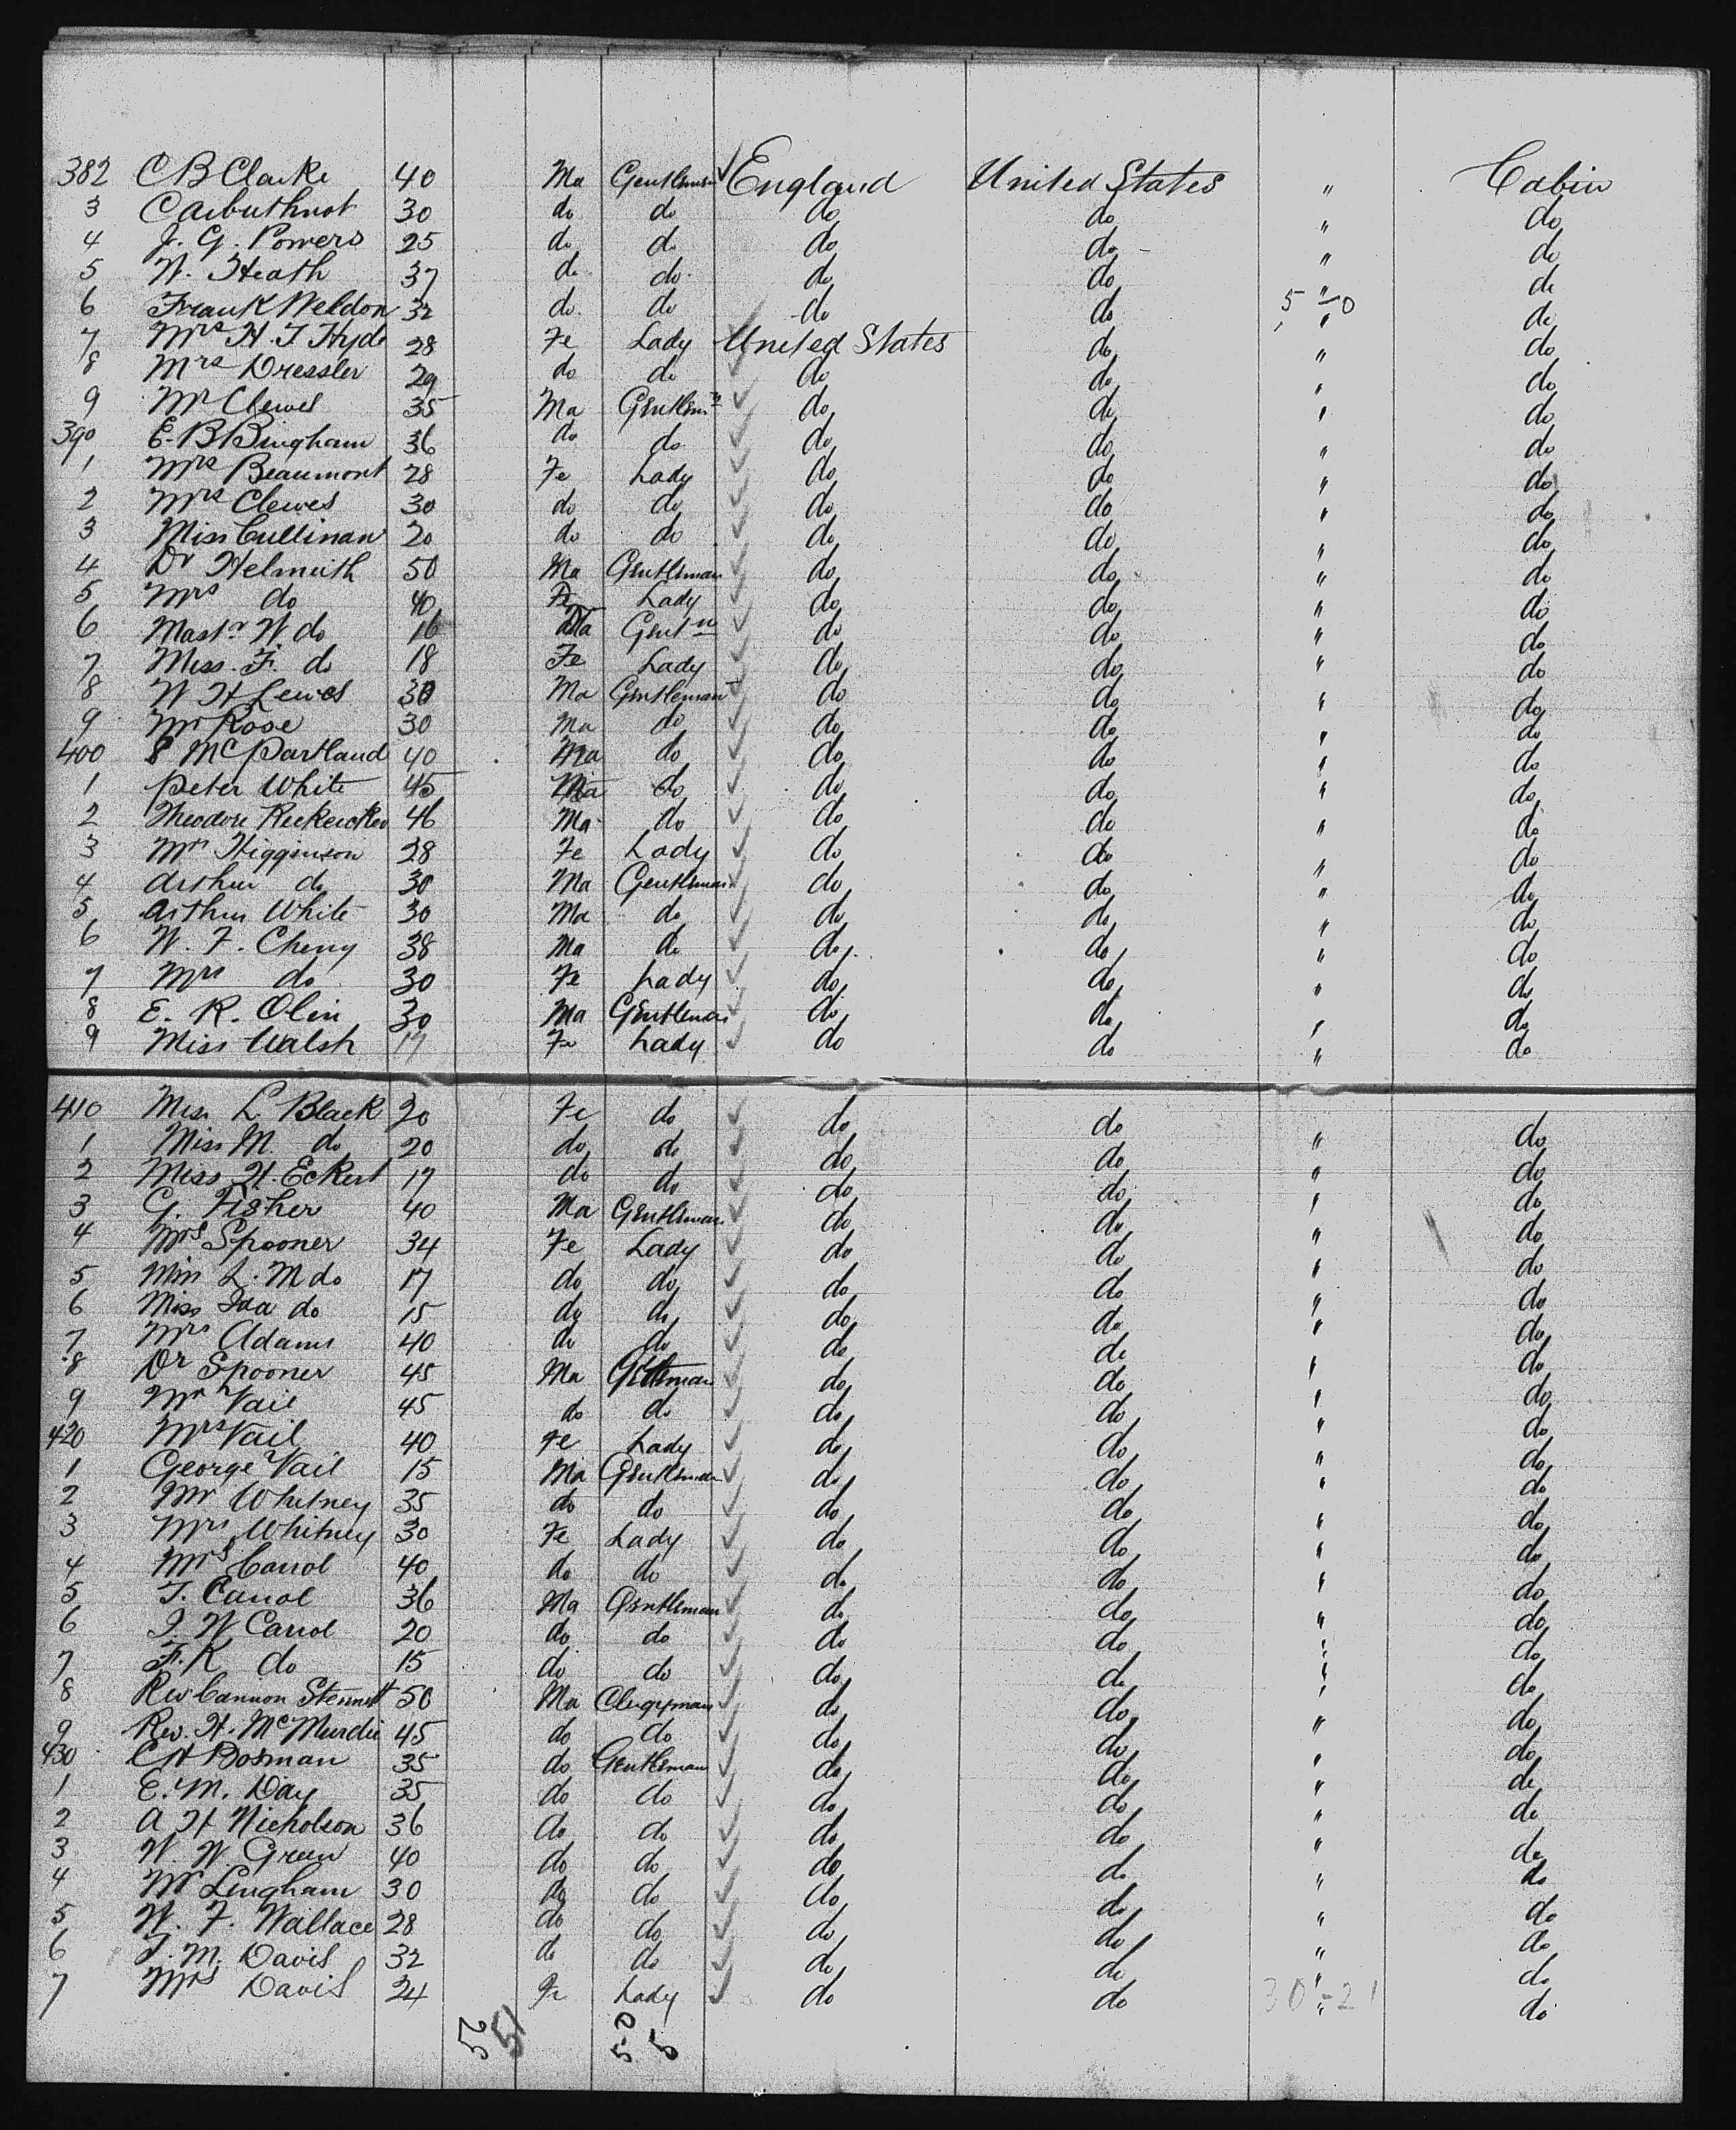 382 C B Clarke 40 Ma Gentleman England United States " Cabin
3 C Arbuthnot 30 do do do do " do
4 J. G. Powers 25 do do do do " do
5 W. Heath 37 do do do do " do
6 Frank Weldon 32 do do do do 5-0 " do
7 Mrs H. T Hyde 28 Fe Lady United States do " do
8 Mrs Dressler 29 do do do do " do
9 Mr Clewes 35 Ma Gentlemn do do " do
390 E. B Bingham 36 do do do do " do
1 Mrs Beaumont 28 Fe Lady do do " do
2 Mrs Clewes 30 do do do do " do
3 Miss Cullinan 20 do do do do " do
4 Dr Helmuth 50 Ma Gentleman do do " do
5 Mrs do 40 Fe Lady do do " do
6 Mastr W do 16 Ma Gentn do do " do
7 Miss. F. do 18 Fe Lady do do " do
8 W H Lewes 30 Ma Gentleman do do " do
9 Mr Rose 30 Ma do do do " do
400 McPartland 40 Ma do do do " do
1 Peter White 45 Ma do do do " do
2 Theodore 46 Ma do do do " do
3 Mrs Higginson 28 Fe Lady do do " do
4 Arthur do 30 Ma Gentleman do do " do
5 Arthur White 30 Ma do do do " do
6 W. F. Cheny 38 Ma do do do " do
7 Mrs do 30 Fe Lady do do " do
8 E. R. Olin 30 Ma Gentleman do do " do
9 Miss Walsh 19 Fe Lady do do " do
410 Miss L Black 20 Fe do do do " do
1 Miss M. do 20 do do do do " do
2 Miss H. Eckert 17 do do do do " do
3 G. Fisher 40 Ma Gentleman do do " do
4 Mrs Spooner 34 Fe Lady do do " do
5 Miss L. M do 17 do do do do " do
6 Miss Ida do 15 do do do do " do
7 Mrs Adams 40 do do do do " do
8 Dr Spooner 45 Ma Gentleman do do " do
9 Mr Vail 45 do do do do " do
420 Mrs Vail 40 Fe Lady do do " do
1 George Vail 15 Ma Gentleman do do " do
2 Mr Whitney 35 do do do do " do
3 Mrs Whitney 30 Fe Lady do do " do
4 Mrs Carrol 40 do do do do " do
5 T. Carrol 36 Ma Gentleman do do " do
6 J. W Carrol 20 do do do do " do
7 F. K do 15 do do do do " do
8 Rev Cannon Stennett 50 Ma Clergyman do do " do
9 Rev. H. McMurdie 45 do do do do " do
430 C H Bosman 35 do Gentleman do do " do
1 E. M. Day 35 do do do do " do
2 A H Nicholson 36 do do do do " do
3 W. W. Green 40 do do do do " do
4 Mr Lingham 30 do do do do " do
5 W. F. Wallace 28 do do do do " do
6 T. M. Davis 32 do do do do " do
7 Mrs Davis 24 Fe Lady do do 30-21 " do